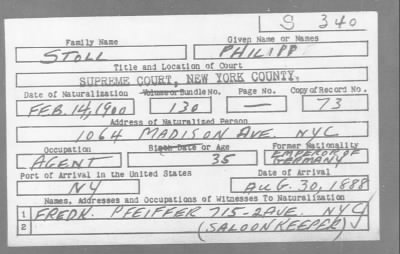 S 340
Family Name Given Name or Names
STOLL PHILIPP
Title and Location of Court
SUPREME COURT, NEW YORK COUNTY.
Date of Naturalization Volume or Bundle No. Page No. Copy of Record No.
FEB. 14, 1900 130 — 73
Address of Naturalized Person
1064 MADISON AVE. NYC
Occupation Birth Date or Age Former Nationality
AGENT 35 EMPEROR OF GERMANY
Port of Arrival in the United States Date of Arrival
NY AUG. 30, 1888
Names, Addresses and Occupations of Witnesses To Naturalization
1 FREDK. PFEIFFER 715-2AVE. NYC
2 (SALOONKEEPER)